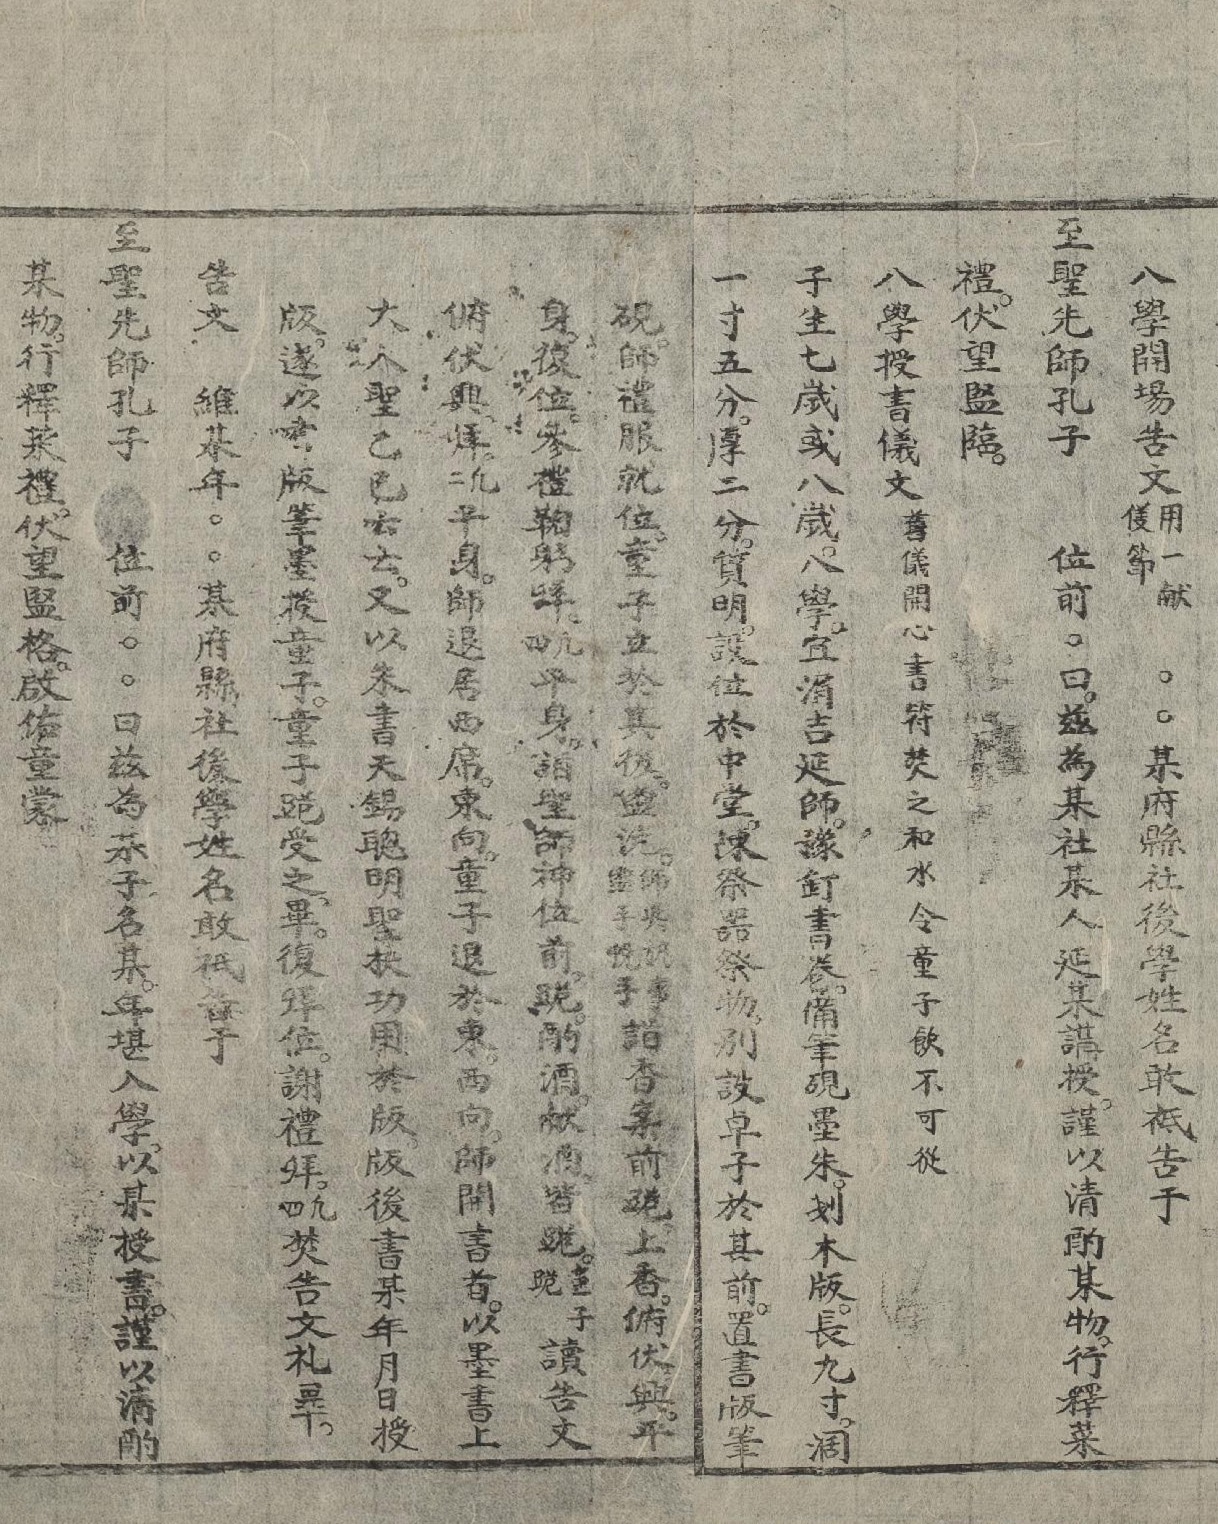 入學開場告文用一献儀節　。。某府縣社後學姓名敢祗告于
至聖先師孔子　位前。曰。茲為某社某人延某講授。謹以清酌某物。行釋菜
禮。伏望監臨。
入學授書儀文舊儀開心書符焚之和水令童子飲不可從
子生七歲或八歲。入學。宜涓吉延師。豫釘書卷。備筆硯墨朱。刬木版。長九寸。濶
一寸五分。厚二分。質明。設位於中堂。陳祭器祭物。別設卓子於其前。置書版筆
硯。師禮服就位。童子立於其後。盥洗。師與執事盥手帨手詣香案前跪。上香。俯伏。興。平
身。復位。參禮鞠躬拜。凡四平身。詣聖師神位前。跪。酌酒。献酒。皆跪。童子跪讀告文
俯伏興。拜。凡二平身。師退居西席。東向。童子退於東。西向。師開書首。以墨書上
大人聖乙已云云。又以朱書天錫聰明聖扶功用於版。版後書某年月日授
版。遂以書版筆墨授童子。童子跪受之。畢。復拜位。謝禮拜。凡四焚告文札畢。
告文　維某年。。某府縣社後學姓名敢祗告于
至聖先師孔子　位前。。曰茲為某子名某。年堪入學。以某授書。謹以清酌
某物。行釋菜禮。伏望監格。啟佑童蒙